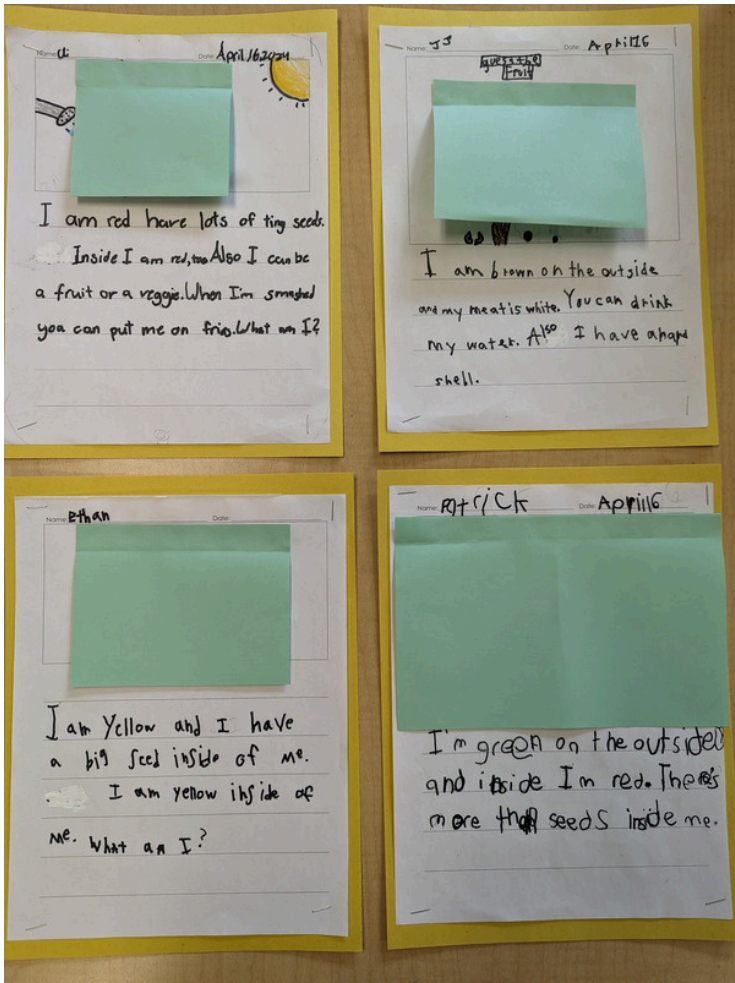 Name: Cli
Date: April 16 2024
I am red have lots of tiny seeds.
Inside I am red, too Also I can be
a fruit or a veggie. When I'm smashed
you can put me on fries. What am I?
Name: JJ
Date: April 16
guess the
Fruit
I am brown on the outside
and my meat is white. You can drink
my water. Also I have a hard
shell.
Name: Ethan
Date:
I am Yellow and I have
a big seed inside of me.
I am yellow inside of
me. What am I?
Name: Patrick
Date: April 16
I'm green on the outside
and inside I'm red. There's
more than seeds inside me.